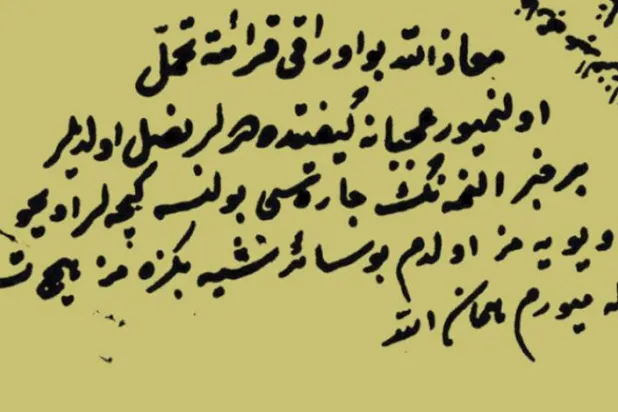 معاذ الله بو اوراقی قرائته تحمل
اولنمیور عجبا نه کیفیتده در لر نصل اولدیلر
بر خبر النمه نك چاره سی بولنسه کیجه لر اویخو
اویویه مز اولدم بو سائر شیه بکزه مز هیچ
میورم امان الله